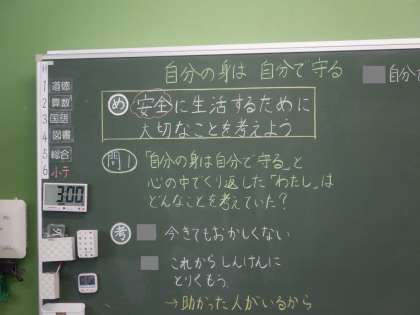 自分の身は 自分で守る
自分で
め 安全に生活するために
大切なことを考えよう
問1 「自分の身は自分で守る」と
心の中でくり返した「わたし」は
どんなことを考えていた？
考 今きてもおかしくない
これからしんけんに
とりくもう
→助かった人がいるから
1 道徳
2 算数
3 国語
4 図書
5 総合
6
3:00